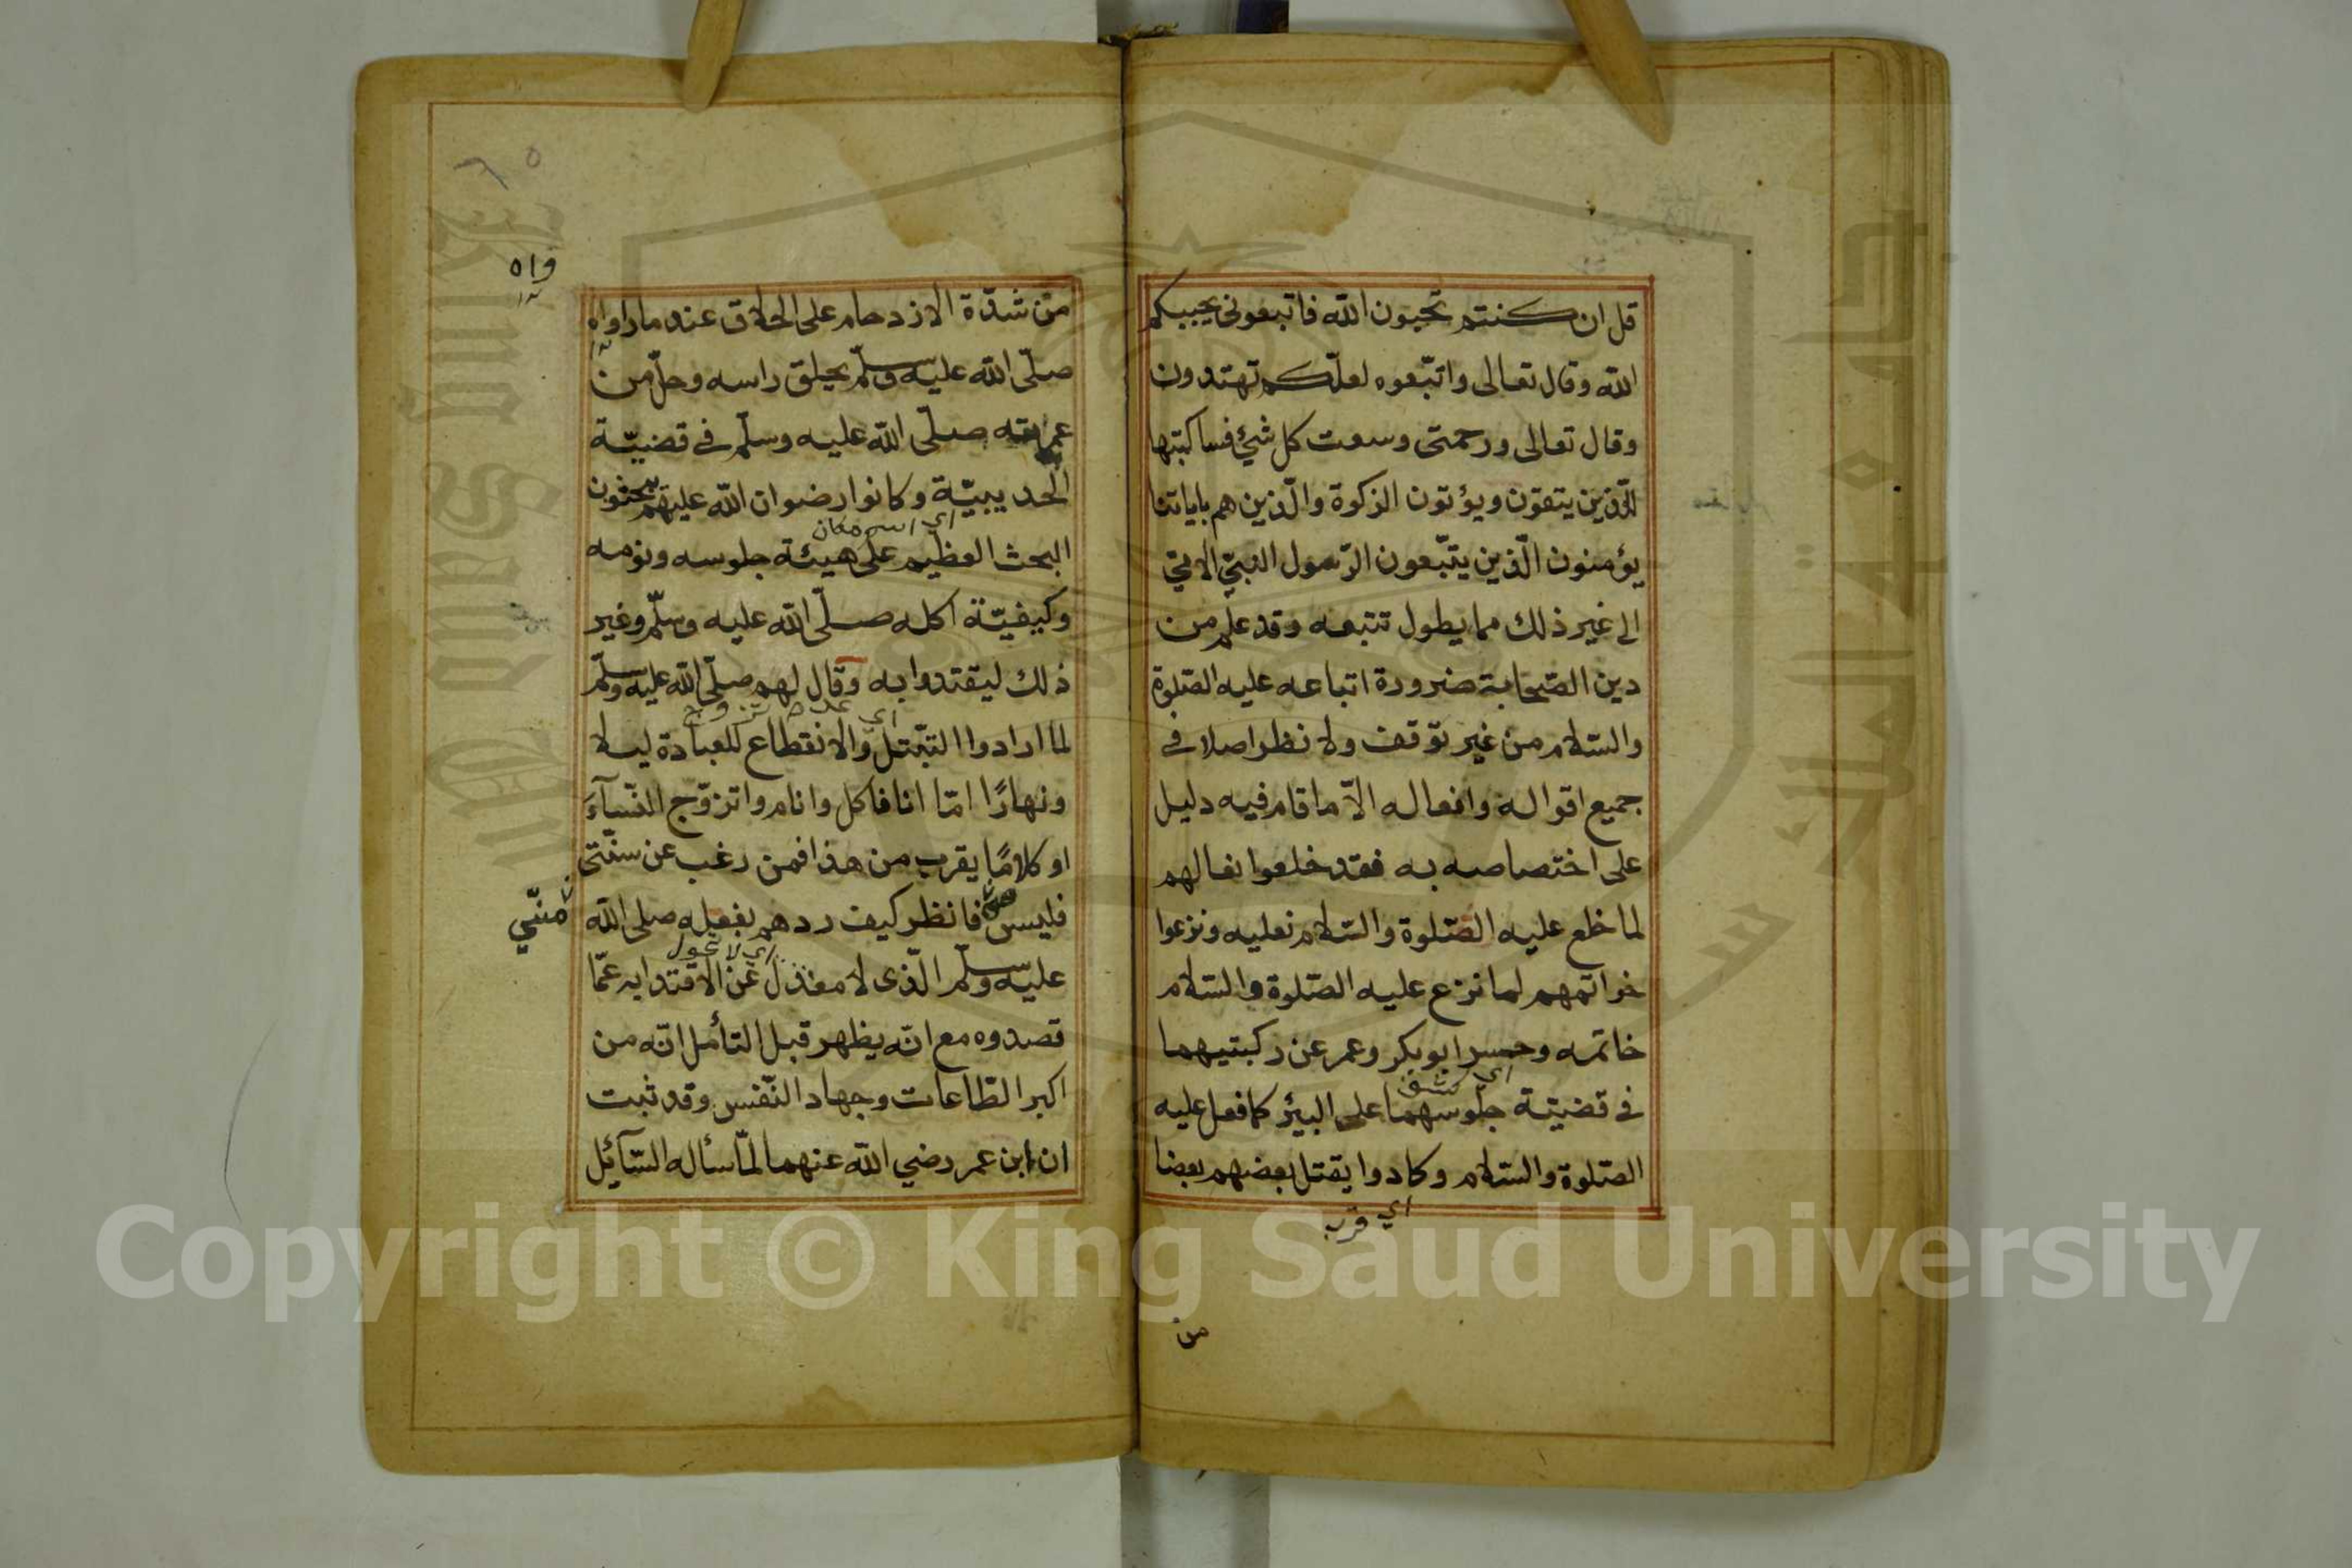 قل ان كنتم تحبون الله فاتبعونى يحببكم
الله وقال تعالى واتبعوه لعلّكم تهتدون
وقال تعالى ورحمتى وسعت كل شئ فساكتبها
للّذين يتقون ويؤتون الزكوة والّذين هم باياتنا
يؤمنون الّذين يتّبعون الرّسول النبيّ الامّيّ
الى غير ذلك مما يطول تتبعه وقد علم من
دين الصّحابة ضرورة اتباعه عليه الصّلوة
والسّلام من غير توقف ولا نظر اصلا فى
جميع اقواله وافعاله الاّ ما قام فيه دليل
على اختصاصه به فقد خلعوا نعالهم
لما خلع عليه الصّلوة والسّلام نعليه ونزعوا
خواتمهم لما نزع عليه الصّلوة والسّلام
خاتمه وحسر ابو بكر وعمر عن ركبتيهما
اي كشف
فى قضيّة جلوسهما على البئر كما فعل عليه
الصّلوة والسّلام وكادوا يقتل بعضهم بعضا
اي قرب
من
٦٥
واه
من شدّة الازدحام على الحلاق عند ما راواه
صلّى الله عليه وسلّم يحلق راسه وحلّ من
عمرته صلّى الله عليه وسلّم فى قضيّة
الحديبيّة وكانوا رضوان الله عليهم يبحثون
اي اسم مكان
البحث العظيم على هيئة جلوسه ونومه
وكيفيّة اكله صلّى الله عليه وسلّم وغير
ذلك ليقتدوا به وقال لهم صلّى الله عليه وسلّم
اي عدم تزوج
لما ارادوا التبّتل والانقطاع للعبادة ليلا
ونهارًا امّا انا فاكل وانام واتزوّج النّسآءَ
او كلامًا يقرب من هذا فمن رغب عن سنّتى
فليس فانظر كيف ردهم بفعله صلى الله
منّي
اي لا تحول
عليه وسلّم الّذى لا معذل عن الاقتدا به عمّا
قصدوه مع انّه يظهر قبل التأمل انّه من
اكبر الطّاعات وجهاد النّفس وقد ثبت
ان ابن عمر رضي الله عنهما لمّا سأله السّآئل
Copyright © King Saud University